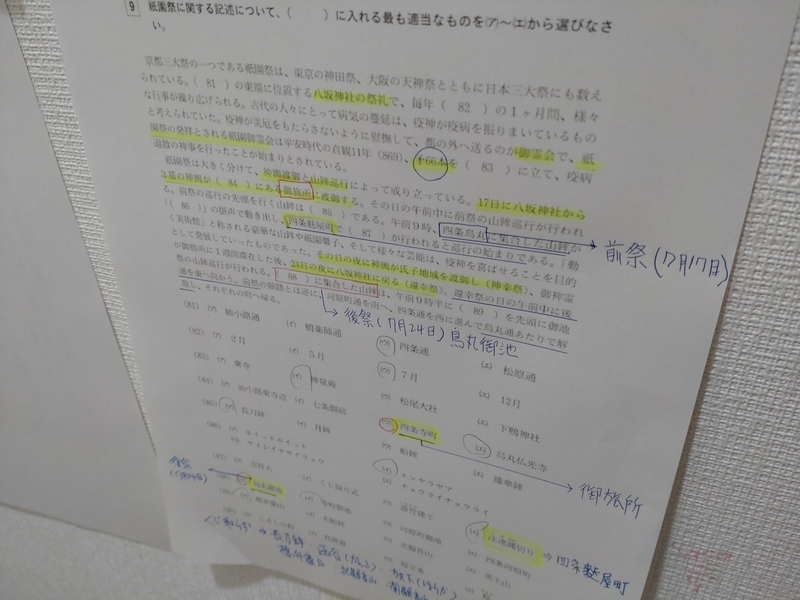 9 祇園祭に関する記述について、（　　）に入れる最も適当なものを㋐～㋓から選びなさ
い。
京都三大祭の一つである祇園祭は、東京の神田祭、大阪の天神祭とともに日本三大祭にも数え
られている。（ 81 ）の東端に位置する八坂神社の祭礼で、毎年（ 82 ）の1ヶ月間、様々
な行事が繰り広げられる。古代の人々にとって病気の蔓延は、疫神が疫病を振りまいているもの
と考えられていた。疫神が災厄をもたらさないように慰撫して、都の外へ送るのが御霊会で、祇
園祭の発祥とされる祇園御霊会は平安時代の貞観11年（869）、矛66本を（ 83 ）に立て、疫病
退散の神事を行ったことが始まりとされている。
祇園祭は大きく分けて、神輿渡御と山鉾巡行によって成り立っている。17日に八坂神社から
3基の神輿が（ 84 ）にある御旅所に渡御する。その日の午前中に前祭の山鉾巡行が行われ
る。前祭の巡行の先頭を行く山鉾は（ 85 ）である。午前9時、四条烏丸に集合した山鉾が
「（ 86 ）」の掛声で動き出し、四条麩屋町で（ 87 ）が行われると巡行の始まりである。「動
く美術館」と称される豪華な山鉾や祇園囃子、そして様々な芸能は、疫神を喜ばせることを目的
として発展していったものであった。その日の夜に神輿が氏子地域を渡御し（神幸祭）、御神霊
が御旅所に1週間滞在した後、24日の夜に八坂神社に戻る（還幸祭）。還幸祭の日の午前中に後
祭の山鉾巡行が行われる。（ 88 ）に集合した山鉾は、午前9時半に（ 89 ）を先頭に御池
通を東へ向かう。前祭の順路とは逆に、河原町通を南へ、四条通を西に進んで烏丸通あたりで解
散し、それぞれの町へ帰る。
前祭(7月17日)
後祭(7月24日) 烏丸御池
(81) ㋐ 姉小路通 ㋑ 蛸薬師通 ㋒ 四条通 ㋓ 松原通
(82) ㋐ 2月 ㋑ 5月 ㋒ 7月 ㋓ 12月
(83) ㋐ 東寺 ㋑ 神泉苑 ㋒ 松尾大社 ㋓ 下鴨神社
(84) ㋐ 油小路東寺道 ㋑ 七条御前 ㋒ 四条寺町 ㋓ 烏丸仏光寺
(85) ㋐ 長刀鉾 ㋑ 月鉾 ㋒ 船鉾 ㋓
(86) ㋐ ホイットホイット ㋑ エンヤラヤー
㋒ サイレイヤサイリョウ ㋓ チョウサイチョウサイ
御旅所
㋑ くじ取らず ㋓ 注連縄切り
四条麩屋町
後祭
(7月24日)
烏丸御池 ㋑ 寺町御池 ㋒ 河原町御池 ㋓ 四条河原町
くじ取らず → 長刀鉾 函谷